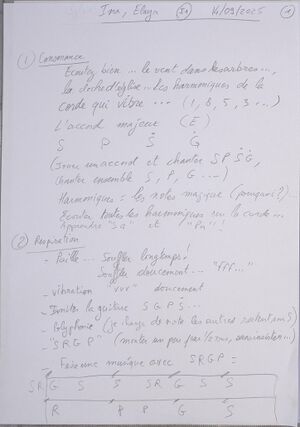 Ina, Elaya I1 14/09/2025 1
1 Consonance
Ecoutez bien ... le vent dans les arbres ...,
la cloche d'église ... les harmoniques de la
corde qui vibre ... (1, 8, 5, 3 ...)
L'accord majeur (E)
S P Ṡ Ġ
(Jouer un accord et chanter S P Ṡ Ġ,
chanter ensemble S, P, G ...)
Harmoniques = les notes magique (pourquoi?)..
Ecouter toutes les harmoniques sur la corde...
Apprendre "Sa" et "Pa"!
2 Respiration
- Paille... Souffler longtemps!
Souffler doucement... "fff..."
- vibration "vvv" doucement
- Imiter la guitare S G P Ṡ ...
- Polyphonie (je change de note les autres restent sur S)
- "S R G P" (monter un peu par 1/2 tons,
- Faire une musique avec S R G P =
SR G S S SR G S S
R P P G S